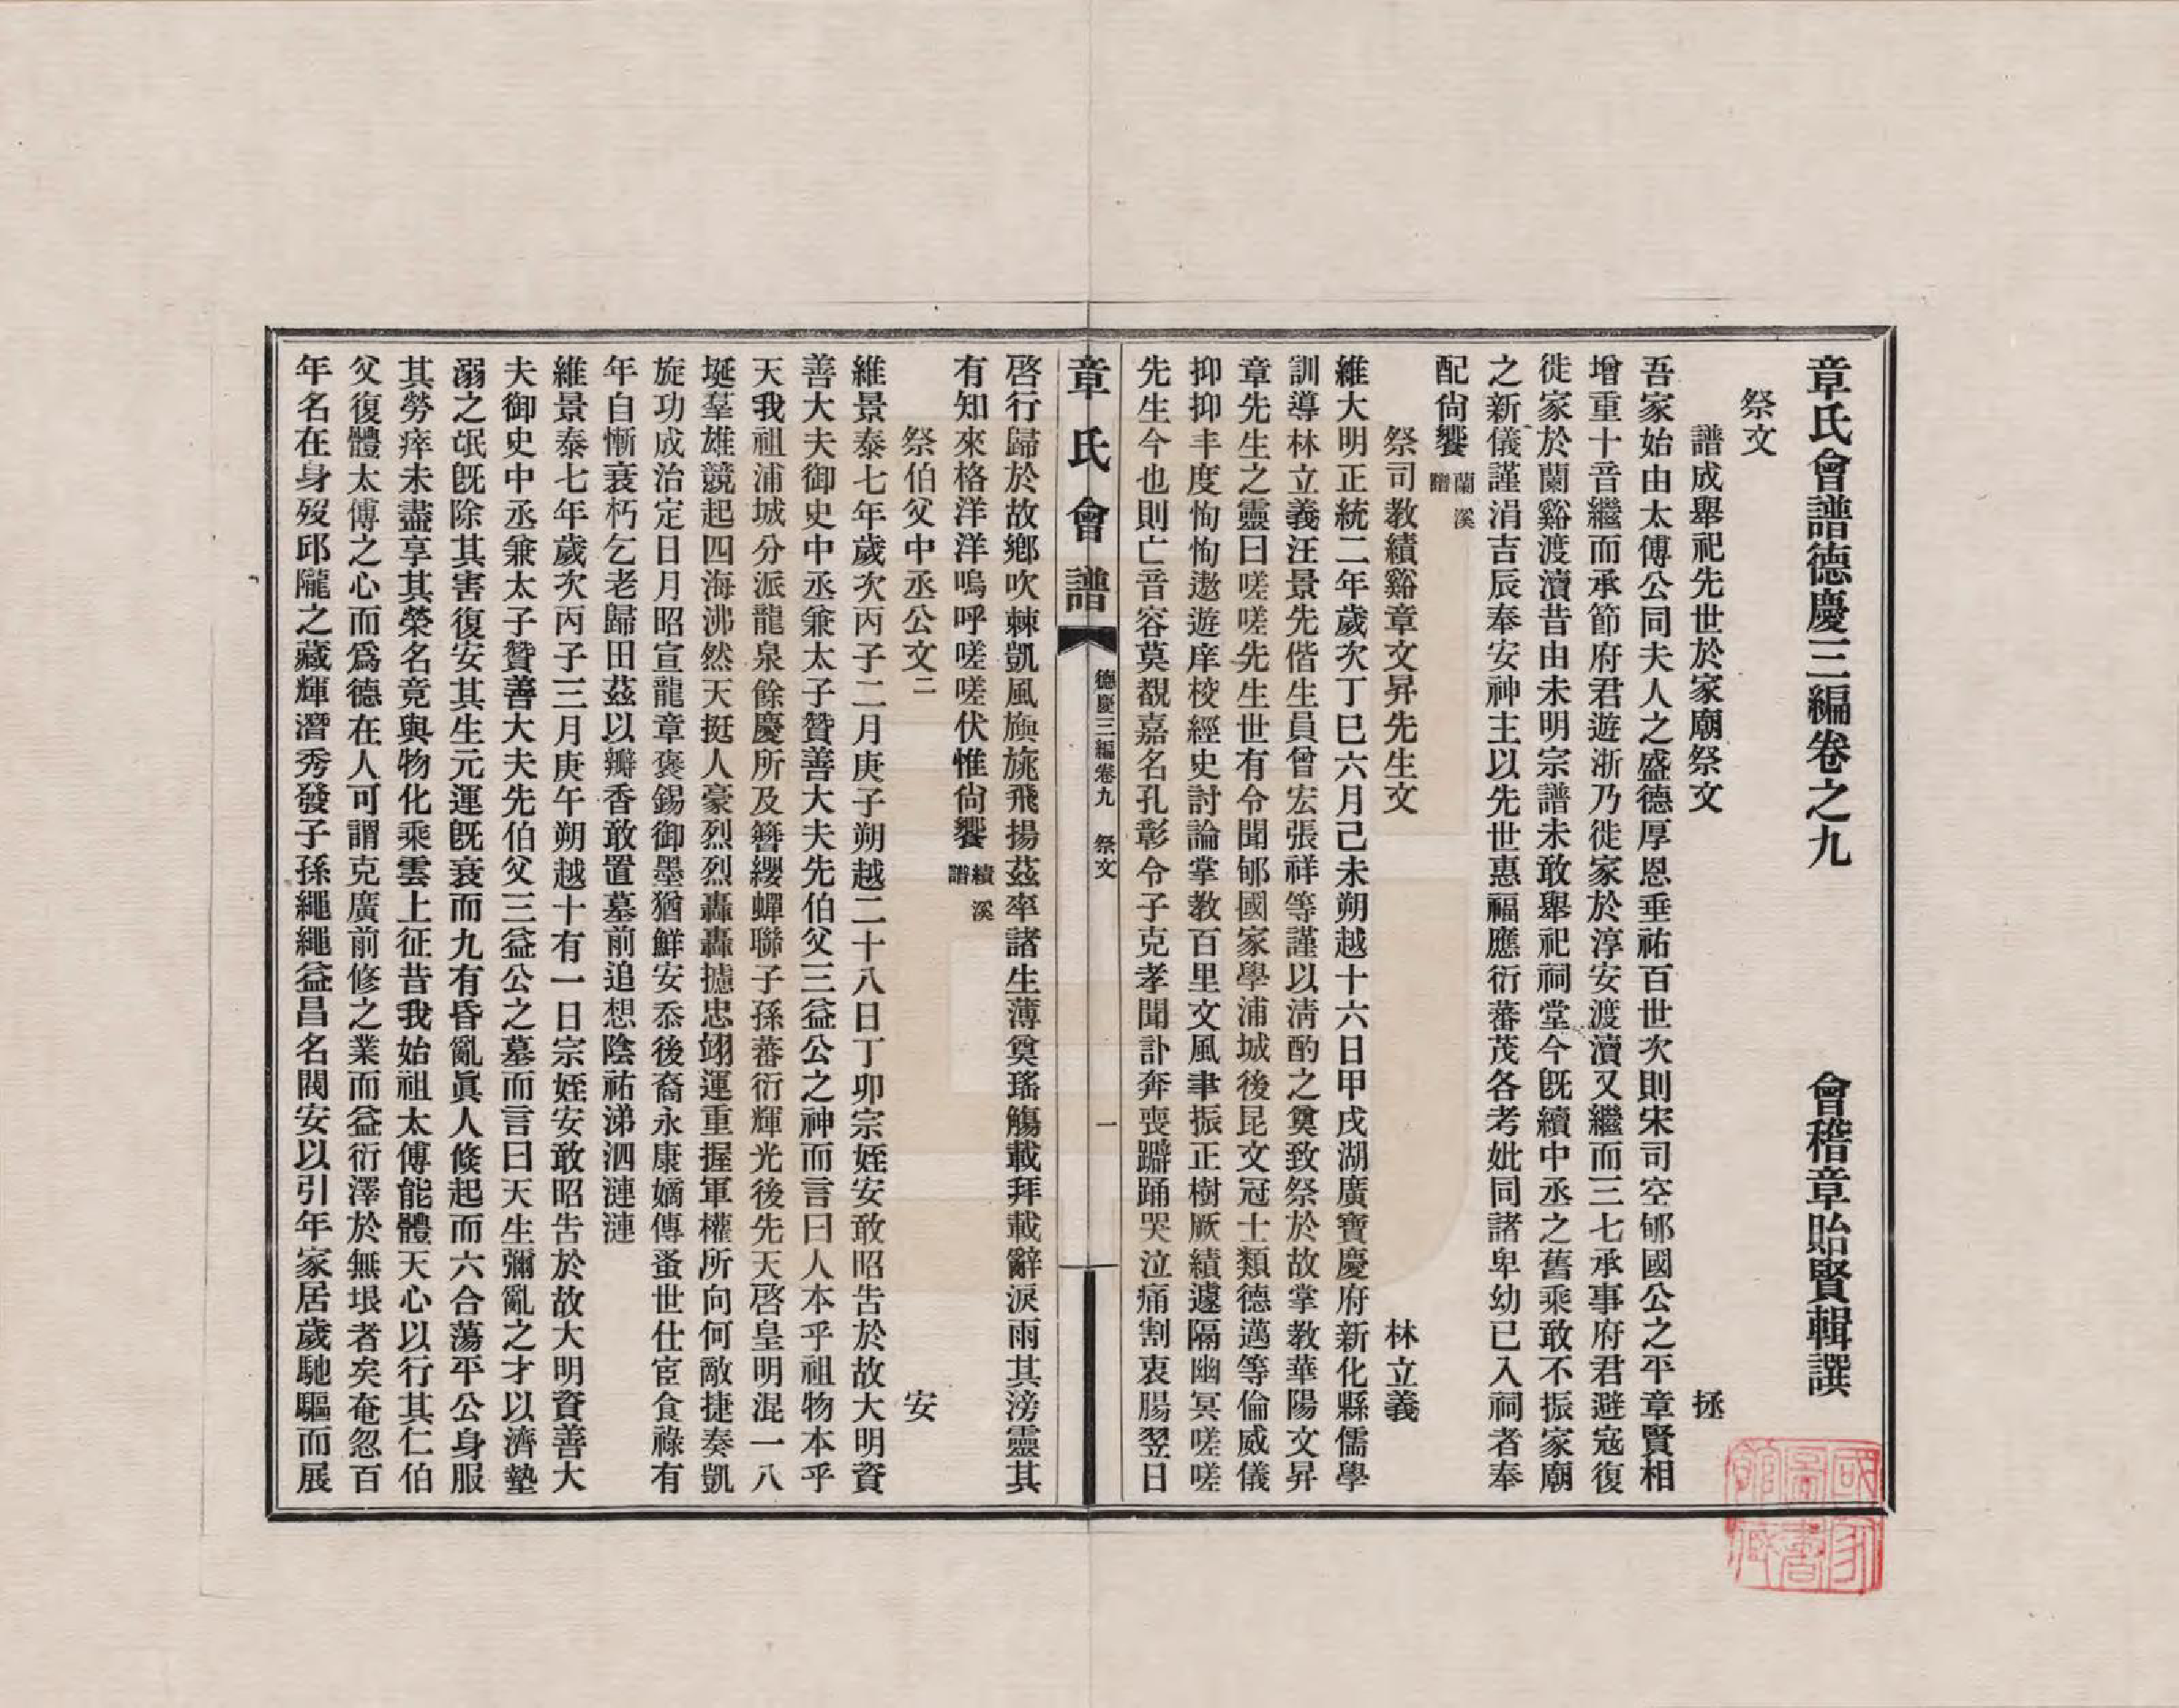 章氏會譜德慶三編卷之九　會稽章貽賢輯譔
祭文
譜成舉祀先世於家廟祭文　拯
吾家始由太傅公同夫人之盛德厚恩垂祐百世次則宋司空郇國公之平章賢相
增重十音繼而承節府君遊浙乃徙家於淳安渡瀆又繼而三七承事府君避寇復
徙家於蘭谿渡瀆昔由未明宗譜未敢舉祀祠堂今既續中丞之舊乘敢不振家廟
之新儀謹涓吉辰奉安神主以先世惠福應衍蕃茂各考妣同諸卑幼已入祠者奉
配尙饗蘭溪譜
祭司教績谿章文昇先生文　林立義
維大明正統二年歲次丁巳六月己未朔越十六日甲戌湖廣寶慶府新化縣儒學
訓導林立義汪景先偕生員曾宏張祥等謹以淸酌之奠致祭於故掌教華陽文昇
章先生之靈曰嗟嗟先生世有令聞郇國家學浦城後昆文冠士類德邁等倫威儀
抑抑丰度恂恂遨遊庠校經史討論掌教百里文風聿振正樹厥績遽隔幽冥嗟嗟
先生今也則亡音容莫覩嘉名孔彰令子克孝聞訃奔喪躃踊哭泣痛割衷腸翌日
章氏會譜　德慶三編卷九　祭文　一
啓行歸於故鄕吹棘凱風旟旐飛揚茲率諸生薄奠瑤觴載拜載辭淚雨其滂靈其
有知來格洋洋嗚呼嗟嗟伏惟尙饗績溪譜
祭伯父中丞公文二　安
維景泰七年歲次丙子二月庚子朔越二十八日丁卯宗姪安敢昭告於故大明資
善大夫御史中丞兼太子贊善大夫先伯父三益公之神而言曰人本乎祖物本乎
天我祖浦城分派龍泉餘慶所及簪纓蟬聯子孫蕃衍輝光後先天啓皇明混一八
埏羣雄競起四海沸然天挺人豪烈烈轟轟攄忠翊運重握軍權所向何敵捷奏凱
旋功成治定日月昭宣龍章褒錫御墨猶鮮安忝後裔永康嫡傳蚤世仕宦食祿有
年自慚衰朽乞老歸田茲以瓣香敢置墓前追想陰祐涕泗漣漣
維景泰七年歲次丙子三月庚午朔越十有一日宗姪安敢昭告於故大明資善大
夫御史中丞兼太子贊善大夫先伯父三益公之墓而言曰天生彌亂之才以濟墊
溺之氓旣除其害復安其生元運旣衰而九有昏亂眞人倐起而六合蕩平公身服
其勞瘁未盡享其榮名竟與物化乘雲上征昔我始祖太傅能體天心以行其仁伯
父復體太傅之心而爲德在人可謂克廣前修之業而益衍澤於無垠者矣奄忽百
年名在身歿邱隴之藏輝潛秀發子孫繩繩益昌名閥安以引年家居歲馳驅而展
國家圖書館藏